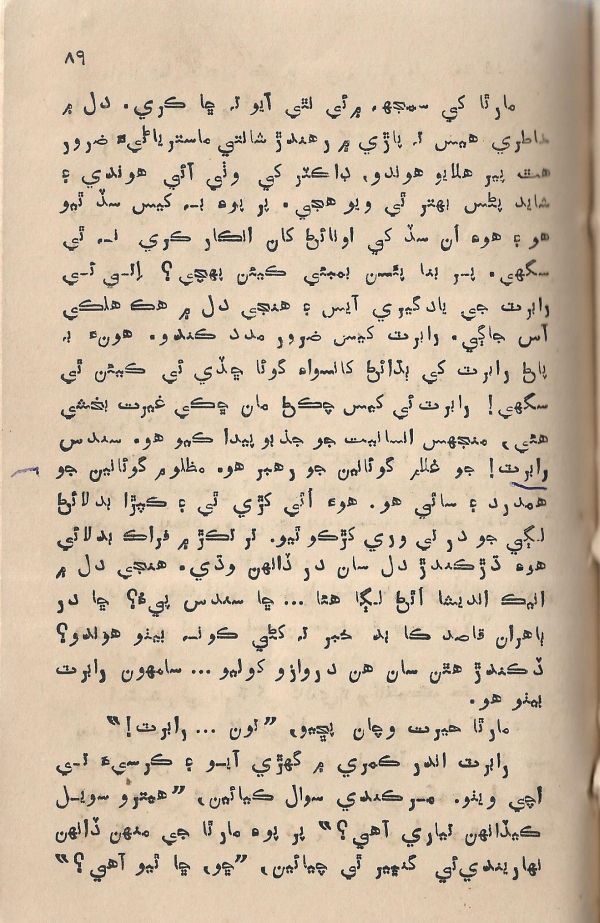 ۸۹
مارٿا کي سمجهہ ۾ ئي نٿي آيو تہ ڇا ڪري. دل ۾
خاطري هيس تہ پاڙي ۾ رهندڙ شالتي ماسترياڻيءَ ضرور
هٿ پير هلايو هوندو، ڊاڪٽر کي وٺي آئي هوندي ۽
شايد پڻس بهتر ٿي ويو هجي. پر پوءِ بہ کيس سڏ ٿيو
هو ۽ هوءَ اُن سڏ کي اونائڻ کان انڪار ڪري نہ ٿي
سگهي. پر بنا پئسن بمبئي ڪيئن پهچي؟ اِتي ئي
رابرٽ جي يادگيري آيس ۽ هنجي دل ۾ هڪ هلڪي
آس جاڳي. رابرٽ کيس ضرور مدد ڪندو. هوءَ بہ
پاڻ رابرٽ کي ٻڌائڻ کانسواءِ گوئا ڇڏي ٿي ڪيئن ٿي
سگهي! رابرٽ ئي کيس چڪڻ مان ڇڪي غيرت بخشي
هئي، منجهس انسانيت جو جذبو پيدا ڪيو هو. سندس
رابرٽ! جو غلام گوئانين جو رهبر هو. مظلوم گوئانين جو
همدرد ۽ ساٿي هو. هوءَ اُٿي کڙي ٿي ۽ ڪپڙا بدلائڻ
لڳي جو در تي وري کڙڪو ٿيو. تڙ تڪڙ ۾ فراڪ بدلائي
هوءَ ڌڙڪندڙ دل سان در ڏانهن وڌي. هنجي دل ۾
انيڪ انديشا اُٿڻ لڳا هئا ... ڇا سندس پيءُ؟ ڇا در
ٻاهران قاصد ڪا بد خبر تہ کڻي ڪونہ بيٺو هوندو؟
ڏڪندڙ هٿن سان هن دروازو کوليو ... سامهون رابرٽ
بيٺو هو.
مارٿا حيرت وچان پڇيو، ”تون ... رابرٽ!“
رابرٽ اندر ڪمري ۾ گهڙي آيو ۽ ڪرسيءَ تي
اچي ويٺو. مرڪندي سوال ڪيائين، ”همٿرو سويل
ڪيڏانهن تياري آهي؟“ پر پوءِ مارٿا جي منهن ڏانهن
نهاريندي ئي گنڀير ٿي چيائين، ”ڇو، ڇا ٿيو آهي؟“